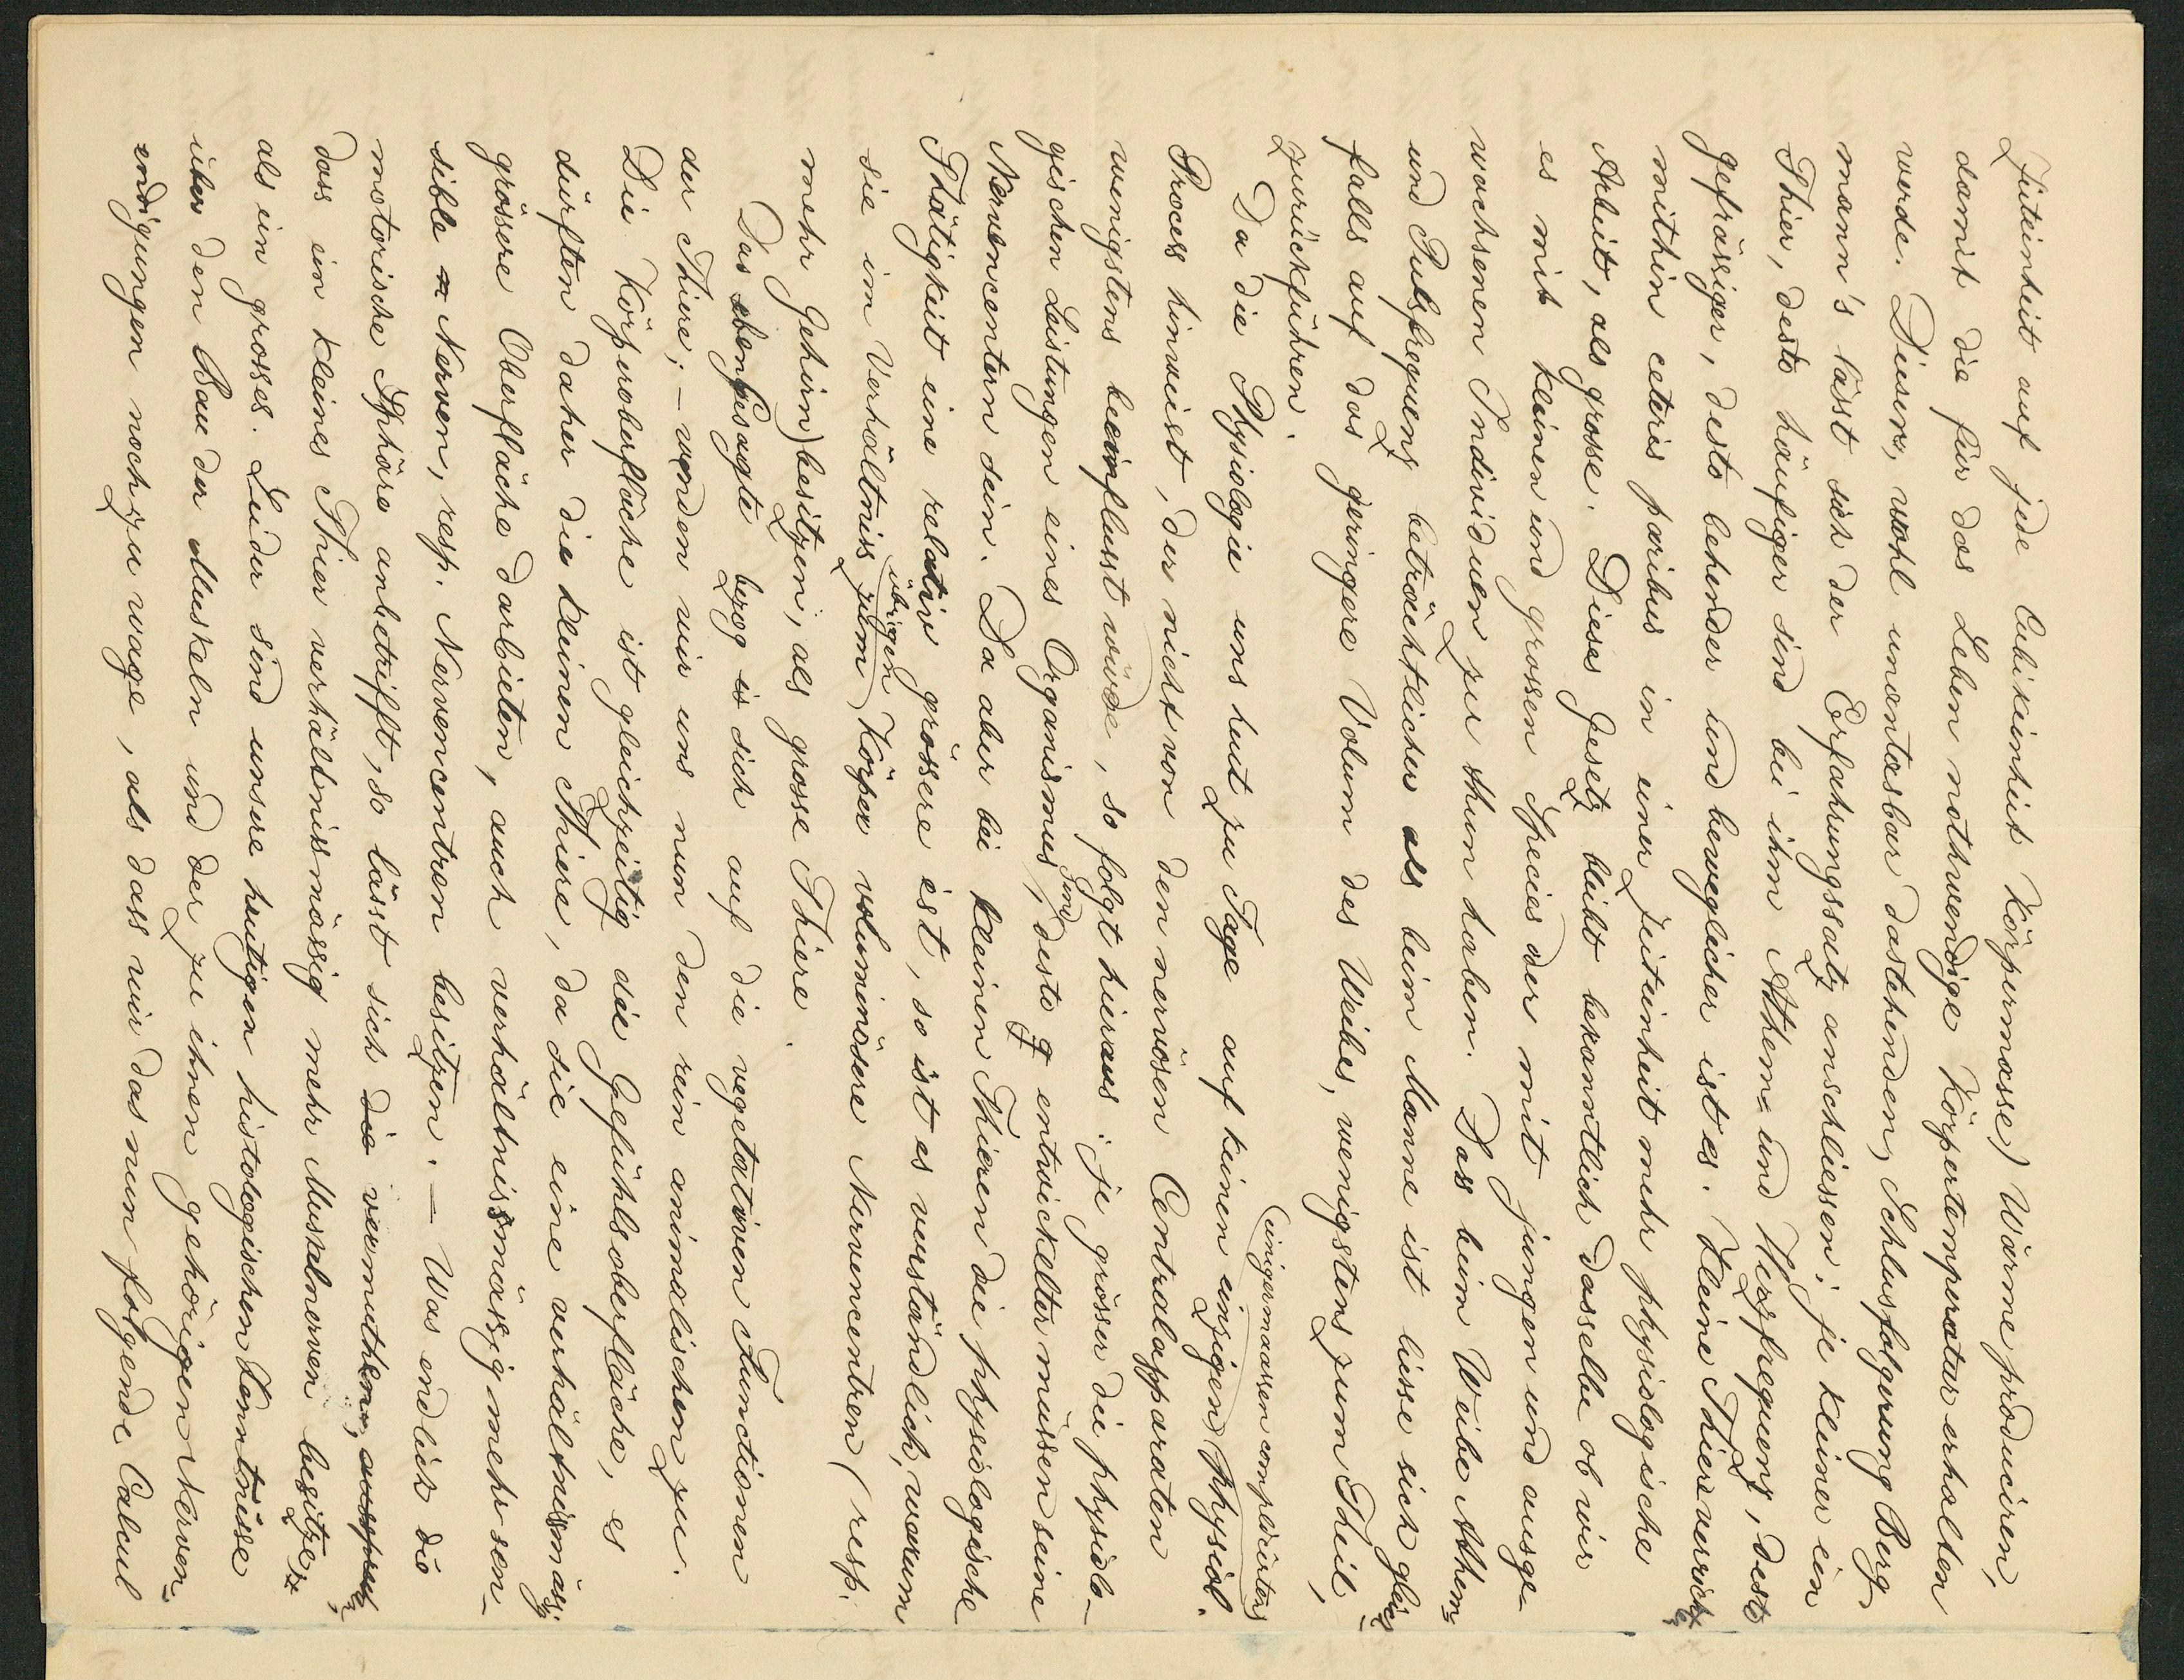 Zeiteinheit auf jede Cubikeinheit Körpermasse) Wärme produciren,
damit die für das Leben nothwendige Körpertemperatur erhalten
werde. Dieser, wohl unantasbar dastehenden, Schlusfolgerung Berg
mann's lässt sich der Erfahrungssatz anschliessen: je kleiner ein
Thier, desto häufiger sind bei ihm Athem- und Herzfrequenz, desto
gefrässiger, desto behender und beweglicher ist es. Kleine Thiere verrich=
mithin ceteris paribus in einer Zeiteinheit mehr physiologische
Arbeit, als grosse. Dieses Gesetz bleibt bekanntlich dasselbe ob wir
es mit kleinen und grossen Species oder mit jungen und ausge-
wachsenen Individuen zu thun haben. Dass beim Weibe Athem=
und Pulsfrequenz beträchtlicher als beim Manne ist liesse sich gleich-
falls auf das geringere Volum des Weibes, wenigstens zum Theil,
zurückführen.
(einigermaassen complicirten)
Da die Physiologie uns heut zu Tage auf keinen einzigen physiol.
Process hinweist, der nicht von den nervösen Centralapparaten
wenigstens beeinflusst würde, so folgt hieraus: je grösser die physiolo-
gischen Leistungen eines Organismus sind, desto entwickelter müssen seine
Nervencentern sein. Da aber bei kleinen Thieren die physiologische
Thätigkeit eine relativ grössere ist, so ist es verständlich, warum
sie im Verhältniss zum übrigen Körper voluminösere Nervencentren (resp.
mehr Gehirn) besitzen, als grosse Thiere.
Das ebengesagte bezog es sich auf die vegetativen Functionen
der Thiere; – wenden wir uns nun den rein animalischen zu.
Die Körperoberfläche ist gleichzeitig die Gefühlsoberfläche, es
dürften daher die kleinen Thiere, da sie eine verhältnismässig
grössere Oberfläche darbieten, auch verhältnissmässig mehr sen-
sible Nerven, resp. Nervencentren besitzen. – Was endlich die
motorische Sphäre anbetrifft, so lässt sich die vermuthen,
dass ein kleines Thier verhältnissmässig mehr Muskelnerven besitze,
als ein grosses. Leider sind unsere heutigen histologischen Kenntnisse
über den Bau der Muskeln und der zu ihnen gehörigen Nerven=
endigungen noch zu vage, als dass wir das nun folgende Calcul